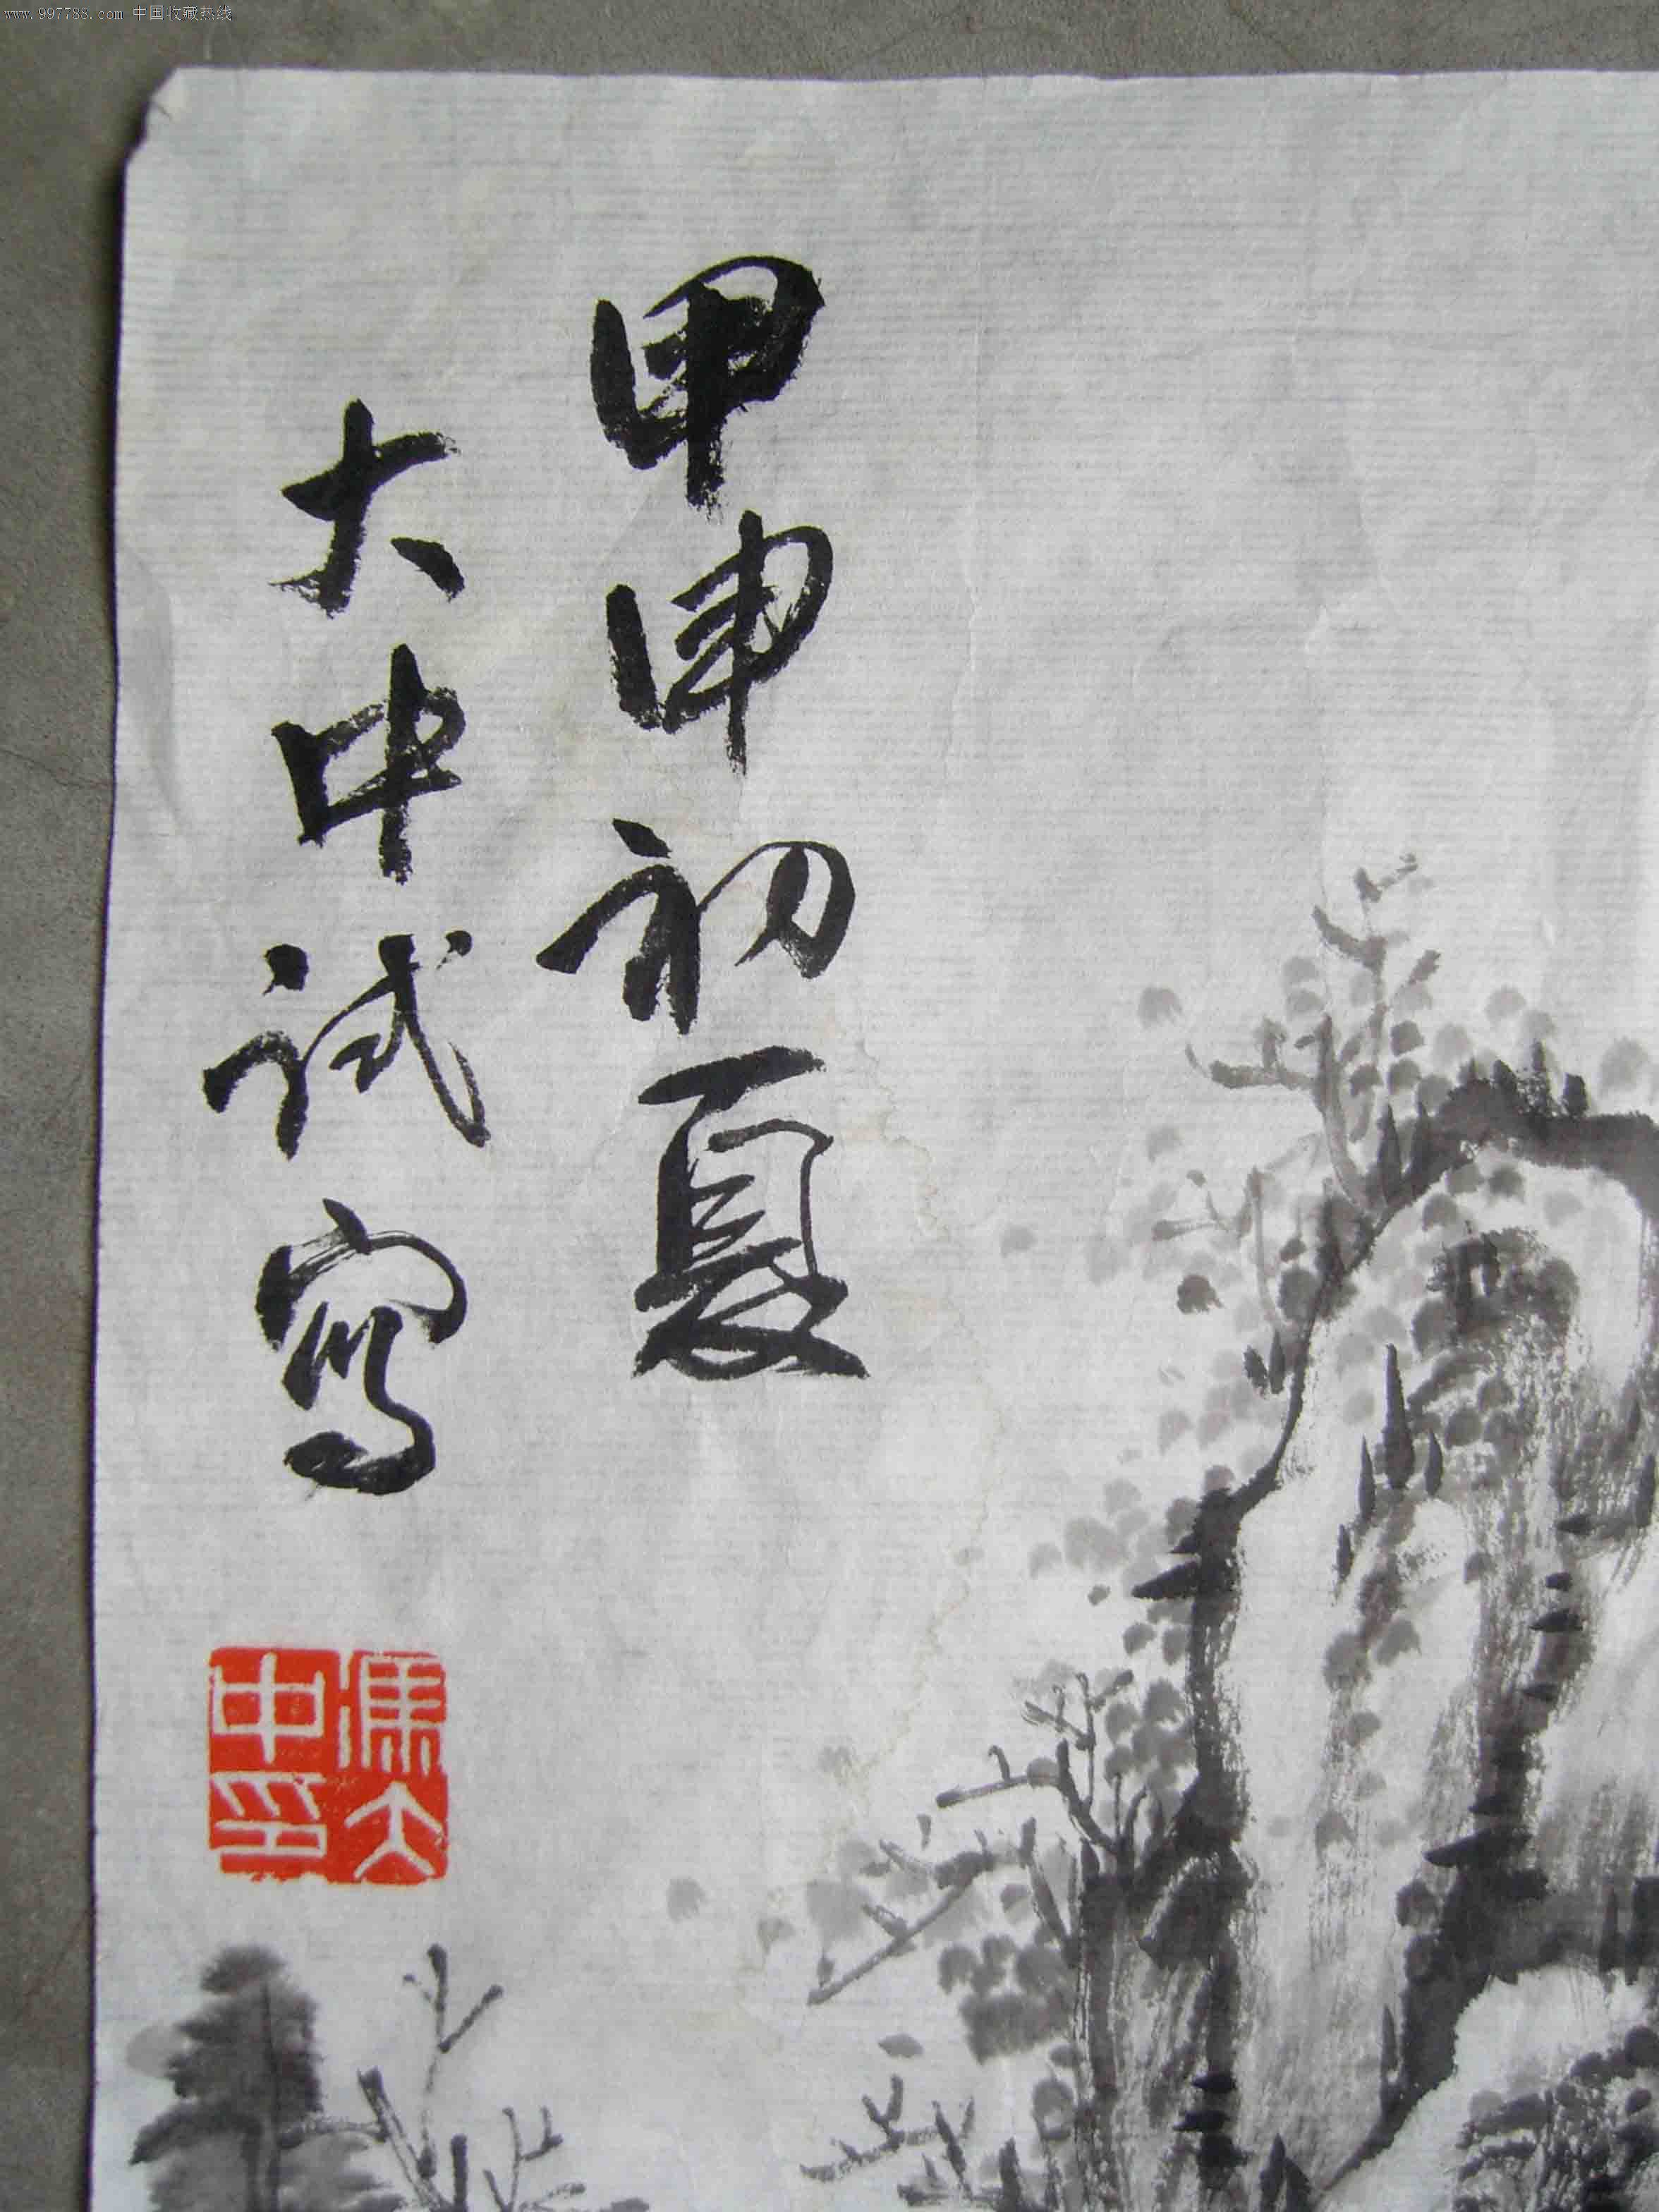 www.997788.com 中国收藏热线
甲申初夏
大中试寫
冯大
中印